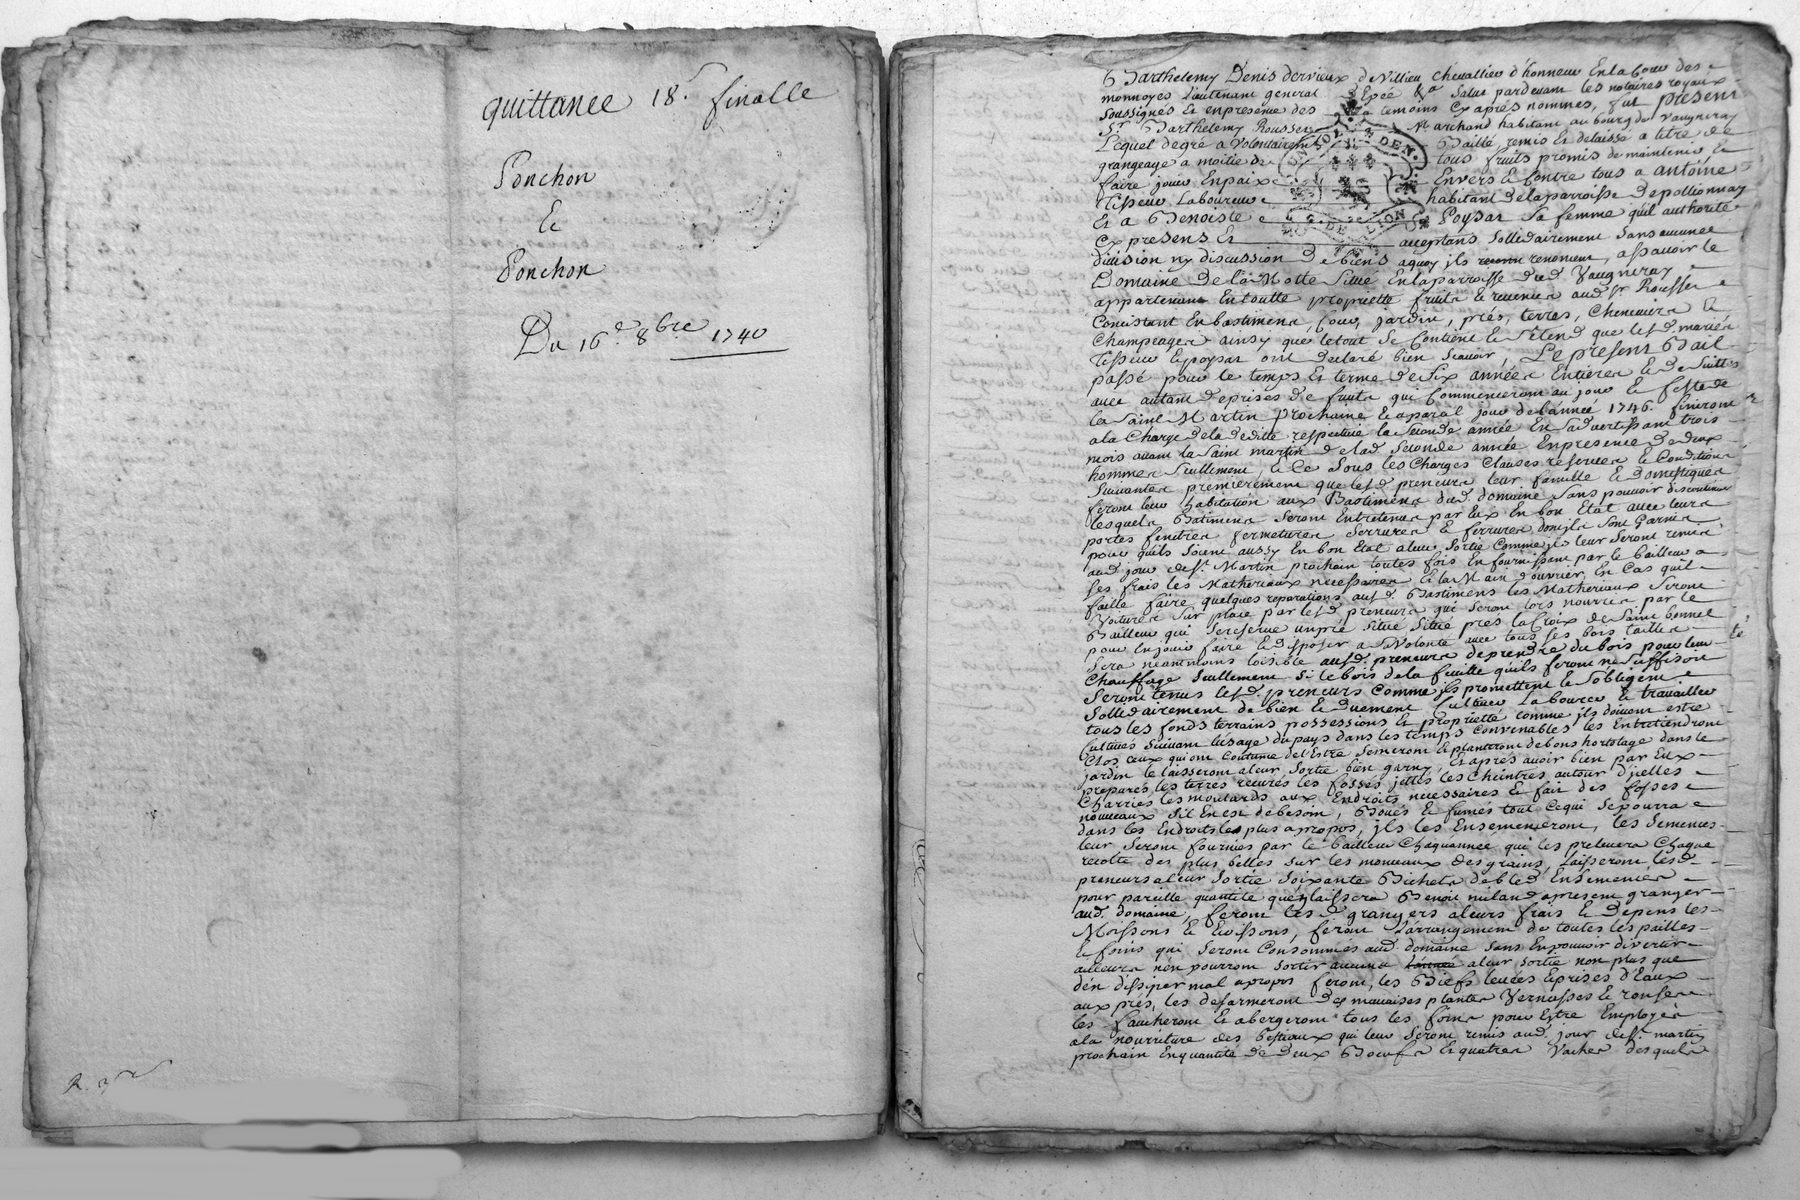 quittance 18.ᵗ finalle
Ponchon
Et
Ponchon
Du 16.ᵉ 8bre 1740
Barthelemy Denis dervieux de Villieu chevallier d'honneur En la Cour des
monnoyes Lieutenant general d'Epée &a Salut pardevant les notaires royaux
soussignés Et en presence des temoins Cy après nommés, fut present
Sr Barthelemy Rousset Marchand habitant au bourg de Vaugneray
Lequel de gré a Volontairement Baillé remis Et delaissé a titre de
grangeage a moitie de tous fruits promis de maintenir Et
faire jouir En paix Envers Et Contre tous a antoine
Tisseur Laboureur habitant de la parroisse de pollionnay
Et a Benoiste Poysat Sa femme quil authorise
Cy presens Et acceptans Sollidairement Sans aucune
division ny discussion de biens aquoy ils renoncent, assavoir le
Domaine De la Motte Situé En la parroisse dud. Vaugneray
appartenant En toutte proprieté fruits Et revenus aud. Sr Rousset
Concistant En bastimens, Cour, jardin, prés, terres, Cheneviers Et
Champeages ainsy que le tout Se Contient Et S'étend que lesd. mariés
Tisseur Et poysat ont declaré bien Scavoir, Le present Bail
passé pour le temps Et terme de Six années Entieres Et de Suittes
avec autant de prises de fruits qui Commenceront au jour Et feste de
la Saint Martin prochaine Et a pareil jour de l'année 1746. finiront
a la Charge de la deditte respective la Seconde année En S'advertissant trois
mois avant la Saint martin de lad. Seconde année En presence de deux
hommes Seullement, Et Ce Sous les Charges Clauses reserves Et Conditions
Suivantes premierement que lesd. preneurs leur famille Et domestiques
feront leur habitation aux Bastimens dud. domaine Sans pouvoir discontinuer
lesquels Batimens Seront Entretenus par Eux En bon Etat avec leurs
portes fenetres fermetures Serrures Et ferrures dont ils Sont Garnis
pour quils Soient aussy En bon Etat a leur Sortie Comme ils leur Seront remis
aud. jour de St. Martin prochain toutes fois En fournissant par le bailleur a
Ses frais les Matheriaux necessaires Et la Main d'ouvrier, En Cas quil
faille faire quelques reparations ausd. Bastimens les Matheriaux Seront
Voiturés Sur place par lesd. preneurs qui Seront lors nourris par le
Bailleur qui Se reserve un pré Situé Situé près la Croix de Saint bonnet
pour En jouir faire Et disposer a Sa Volonté avec tous les bois taillis
Sera neantmoins loisible ausd. preneurs de prendre du bois pour leur
Chauffage Seullement Si le bois de la feuille quils feront ne Suffisoit
Seront tenus lesd. preneurs Comme ils promettent Et S'obligent
Sollidairement de bien Et duement Cultiver Labourer Et travailler
tous les fonds terrains possessions Et proprieté comme ils doivent estre
Cultivés Suivant l'usage du pays dans les temps convenables les Entretiendront
Clos ceux qui ont Coutume de l'Estre Semeront Et planteront de bons hortolage dans le
jardin le laisseront a leur Sortie bien garny, Et après avoir bien par Eux
preparés les terres recurés les fossés jettés les Cheintres autour d'icelles
Charriés les moulards aux Endroits necessaires Et fait des fosses
nouveaux S'il En est de besoin, Boués Et fumés tout Ce qui Se pourra
dans les Endroits les plus apropos, ils les Ensemenseront, les Semences
leur Seront fournies par le bailleur Chaqu'année qui les prelevera Chaque
recolte des plus belles Sur les monceaux des grains, Laisseront lesd.
preneurs a leur Sortie Soixante Bichets de bled Ensemencés
pour pareille quantité qu'en laissera Benoit milan apresent granger
aud. domaine, feront lesd. grangers a leurs frais Et Depens les
Moissons Et Eoissons, feront l'arrangement de toutes les pailles
Et foins qui Seront Consommés aud. domaine Sans En pouvoir divertir
ailleurs n'en pourront Sortir aucuns a leur Sortie non plus que
d'En dissiper mal apropos feront, les Biefs levées Et prises d'Eaux
aux prés, les desarmeront des mauvaises plantes Vernasses Et ronses
les faucheront Et abergeront tous les foins pour Estre Employés
a la nourriture des Bestiaux qui leur Seront remis aud. jour de St. martin
prochain En quantité de Deux Boeufs Et quatres Vaches desquels